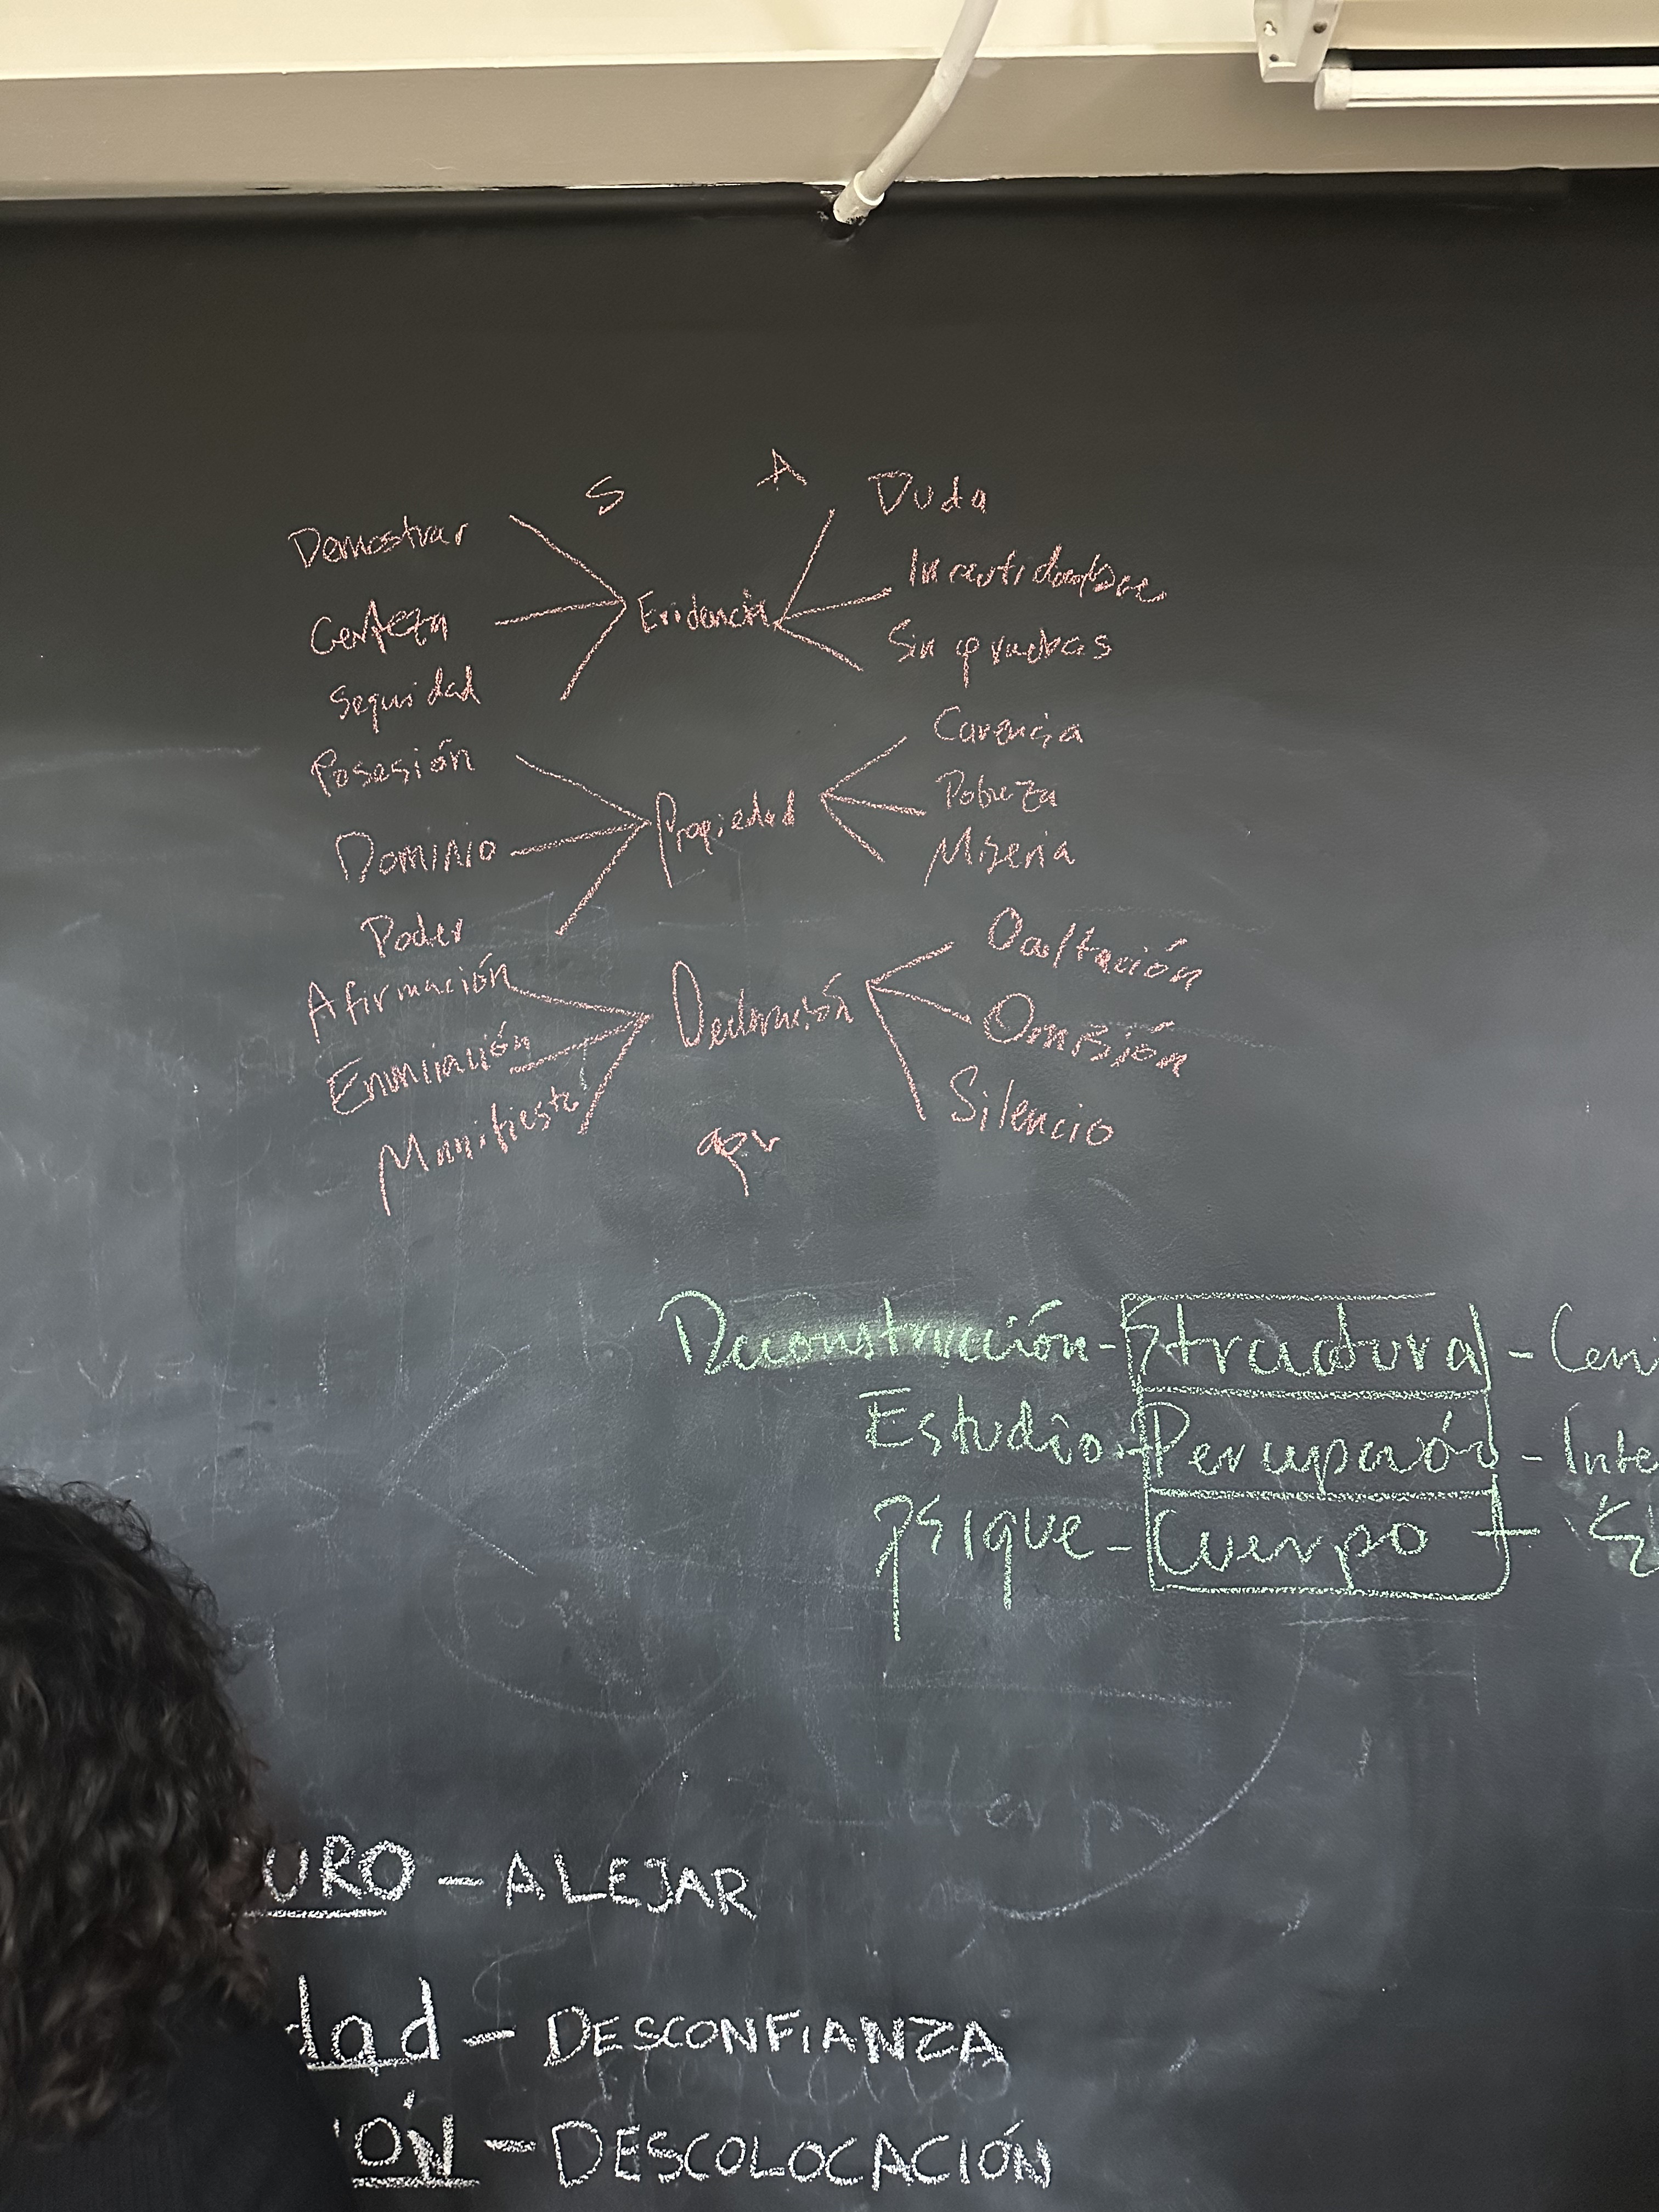 S A
Demostrar Duda
Certeza Evidencia Incertidumbre
Seguridad Sin pruebas
Posesión Carencia
Dominio Propiedad Pobreza
Poder Miseria
Afirmación Declaración Ocultación
Enunciación Omisión
Manifiesto Silencio
Deconstrucción - Structura - Cen
Estudio - Percepción - Inte
Psique - Cuerpo -
URO - ALEJAR
dad - DESCONFIANZA
ÓN - DESCOLOCACIÓN